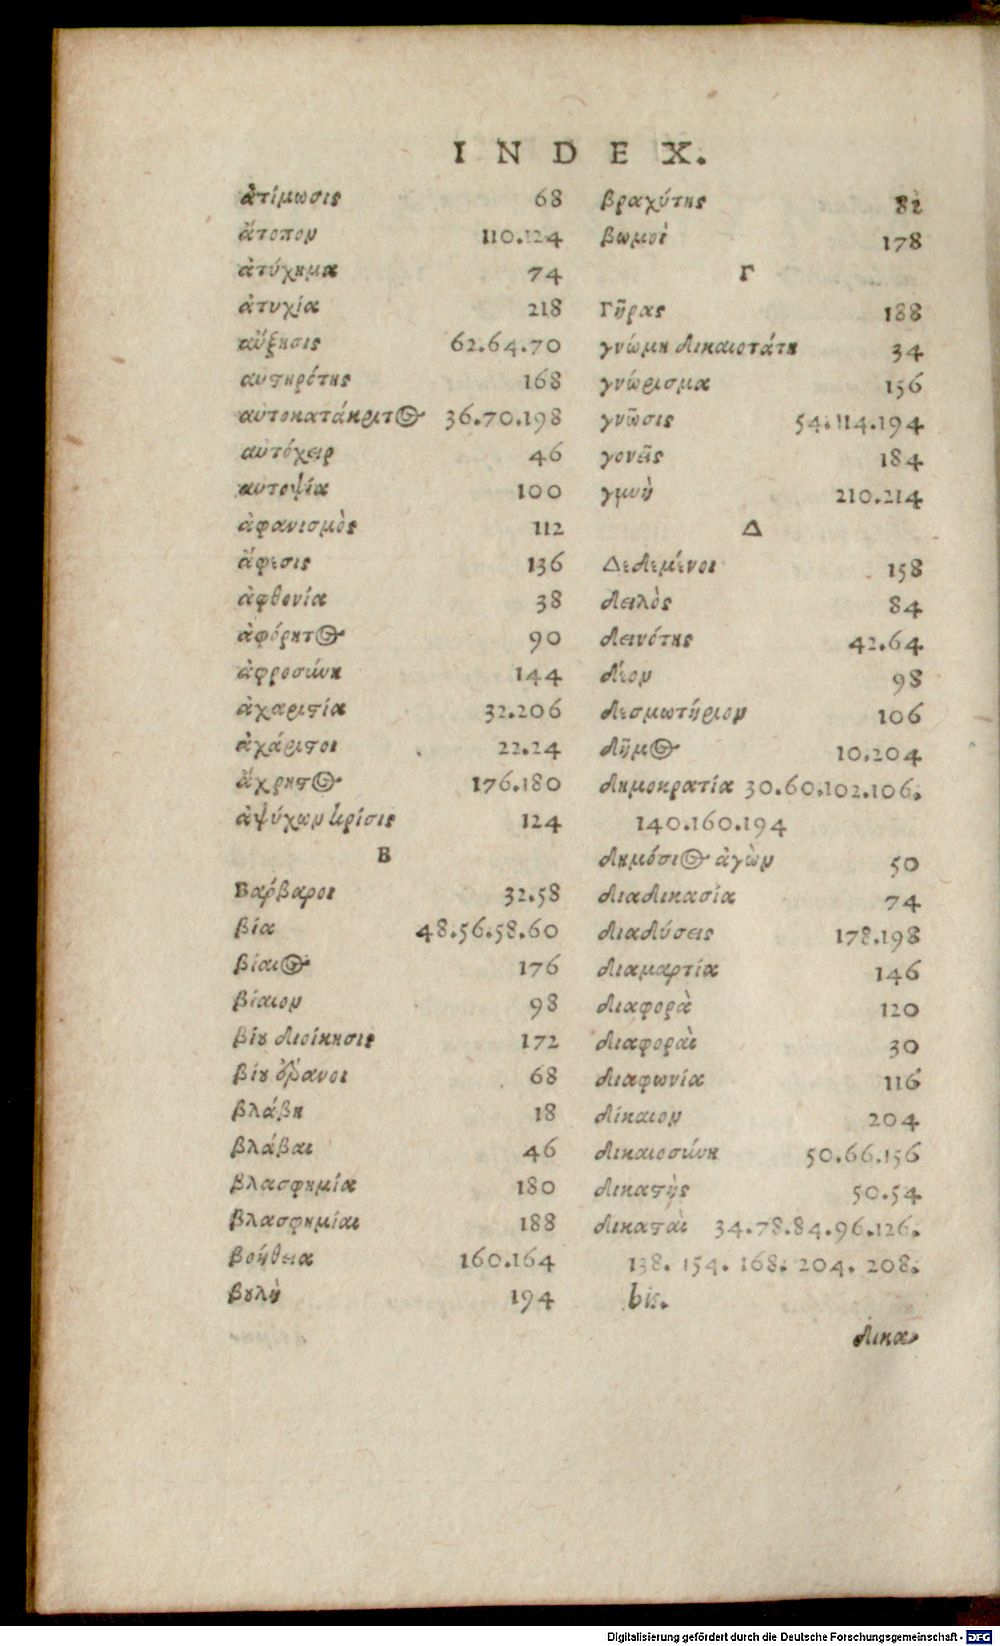 INDEX.
ἀτίμωσις 68
ἄτοπον 110.124
ἀτύχημα 74
ἀτυχία 218
αὔξησις 62.64.70
αὐστηρότης 168
αὐτοκατάκριτος 36.70.198
αὐτόχειρ 46
αὐτοψία 100
ἀφανισμὸς 112
ἄφεσις 136
ἀφθονία 38
ἀφόρητος 90
ἀφροσύνη 144
ἀχαριστία 32.206
ἀχάριστοι 22.24
ἄχρηστος 176.180
ἀψύχων κρίσις 124
Β
Βάρβαροι 32.58
βία 48.56.58.60
βίαιος 176
βίαιον 98
βίου διοίκησις 172
βίου ὄργανοι 68
βλάβη 18
βλάβαι 46
βλασφημία 180
βλασφημίαι 188
βοήθεια 160.164
βουλὴ 194
βραχύτης 82
βωμοὶ 178
Γ
Γῆρας 188
γνώμη δικαιοτάτη 34
γνώρισμα 156
γνῶσις 54.114.194
γονεῖς 184
γυνὴ 210.214
Δ
Δεδεμένοι 158
δειλὸς 84
δεινότης 42.64
δέον 98
δεσμωτήριον 106
δῆμος 10.204
δημοκρατία 30.60.102.106.
140.160.194
δημόσιος ἀγὼν 50
διαδικασία 74
διαδύσεις 178.198
διαμαρτία 146
διαφορὰ 120
διαφοραὶ 30
διαφωνία 116
δίκαιον 204
δικαιοσύνη 50.66.156
δικαστὴς 50.54
δικασταὶ 34.78.84.96.126.
138. 154. 168. 204. 208.
bis.
δικα-
Digitalisierung gefördert durch die Deutsche Forschungsgemeinschaft - DFG